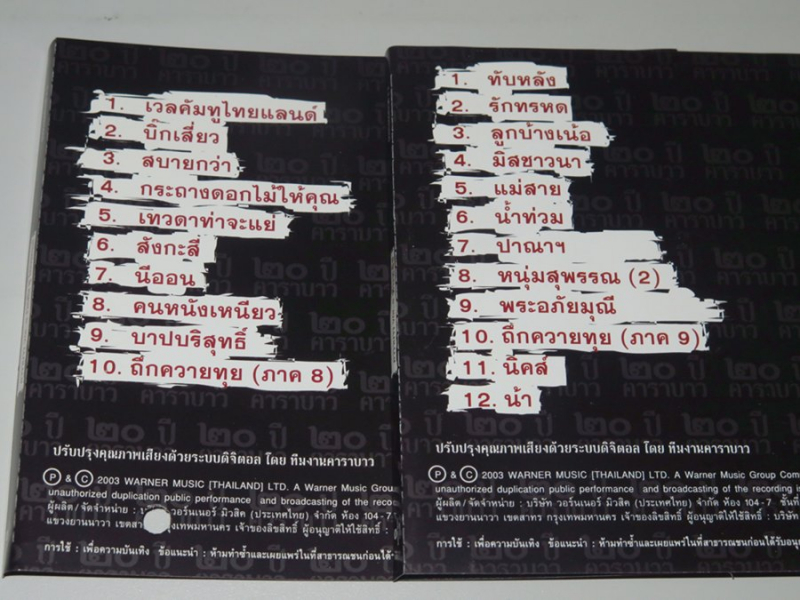 1. เวลคัมทูไทยแลนด์
2. บิ๊กเสี่ยว
3. สบายกว่า
4. กระถางดอกไม้ให้คุณ
5. เทวดาท่าจะแย่
6. สังกะสี
7. นีออน
8. คนหนังเหนียว
9. บาปบริสุทธิ์
10. ถึกควายทุย (ภาค 8)
ปรับปรุงคุณภาพเสียงด้วยระบบดิจิตอล โดย ทีมงานคาราบาว
P & C 2003 WARNER MUSIC [THAILAND] LTD. A Warner Music Group
unauthorized duplication public performance and broadcasting of the reco
ผู้ผลิต/จัดจำหน่าย : วอร์นเนอร์ มิวสิค (ประเทศไทย) จำกัด ห้อง 104-7
แขวงยานนาวา เขตสาทร กรุงเทพมหานคร เจ้าของลิขสิทธิ์ ผู้อนุญาตให้ใช้สิทธิ์ :
การใช้ : เพื่อความบันเทิง ข้อแนะนำ : ห้ามทำซ้ำและเผยแพร่ในที่สาธารณชนก่อนได้
1. ทับหลัง
2. รักทรหด
3. ลูกบ้างเน้อ
4. มิสชาวนา
5. แม่สาย
6. น้ำท่วม
7. ปาณาฯ
8. หนุ่มสุพรรณ (2)
9. พระอภัยมุณี
10. ถึกควายทุย (ภาค 9)
11. นิคส์
12. น้า
ปรับปรุงคุณภาพเสียงด้วยระบบดิจิตอล โดย ทีมงานคาราบาว
P & C 2003 WARNER MUSIC [THAILAND] LTD. A Warner Music Group Com
unauthorized duplication public performance and broadcasting of the recording i
ผู้ผลิต/จัดจำหน่าย : บริษัท วอร์นเนอร์ มิวสิค (ประเทศไทย) จำกัด ห้อง 104-7 ชั้นที่
แขวงยานนาวา เขตสาทร กรุงเทพมหานคร เจ้าของลิขสิทธิ์ ผู้อนุญาตให้ใช้สิทธิ์ : บริษัท
การใช้ : เพื่อความบันเทิง ข้อแนะนำ : ห้ามทำซ้ำและเผยแพร่ในที่สาธารณชนก่อนได้รับอนุญ